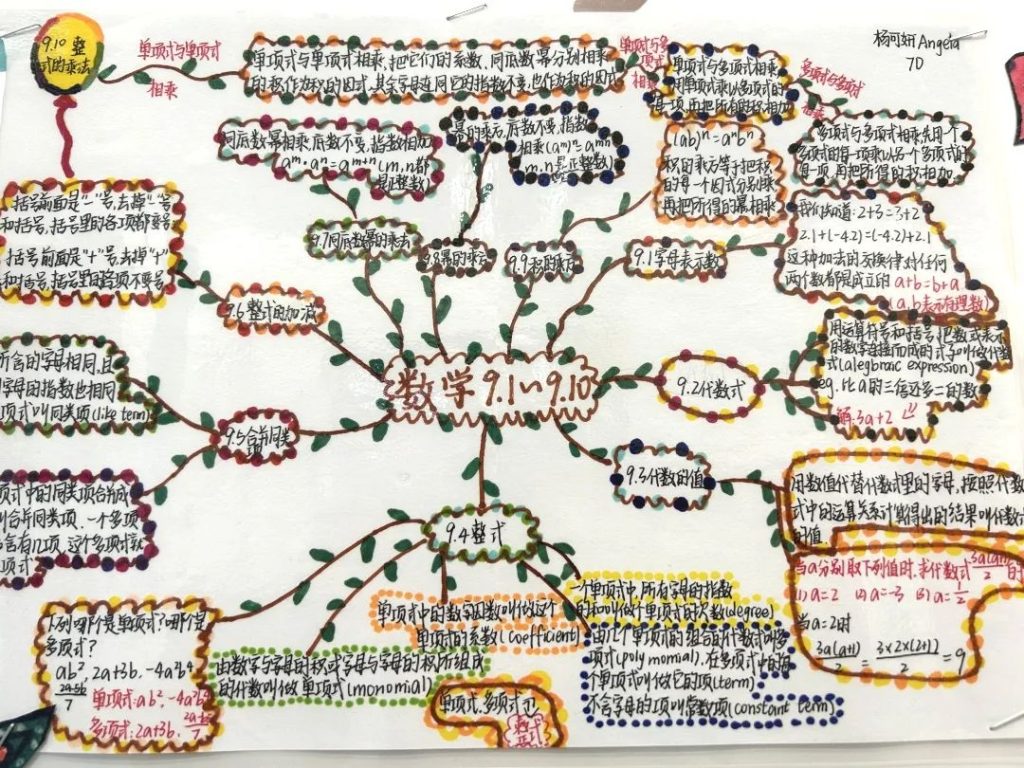 9.10 整
式的乘法
单项式与单项式
相乘
单项式与单项式相乘,把它们的系数、同底数幂分别相乘
的积作为积的因式,其余字母连同它的指数不变,也作为积的因式
单项式与多
项式
相乘
单项式与多项式相乘
是单项式乘以多项式的
每一项,再把所有的积相加
多项式与多项式
相乘
多项式与多项式相乘,先用一个
多项式的每一项乘以另一个多项式的
每一项,再把所得的积相加
杨可妍Angela
7D
同底数幂相乘底数不变,指数相加
aᵐ·aⁿ=aᵐ⁺ⁿ(m,n都
是正整数)
幂的乘方,底数不变,指数
相乘(aᵐ)ⁿ=aᵐⁿ
m,n是正整数)
(ab)ⁿ=aⁿbⁿ
积的乘方等于把积
的每一个因式分别乘
再把所得的幂相乘
我们知道:2+3=3+2
2.1+(-4.2)=(-4.2)+2.1
这种加法的交换律对任何
两个数都是成立的 a+b=b+a
(a,b表示有理数)
括号前面是"-"号,去掉"-"号
和括号,括号里的各项都变号
括号前面是"+"号,去掉"+"
和括号,括号里的各项不变号
9.7同底数幂的乘法
9.8幂的乘方
9.9积的乘方
9.1字母表示数
9.6整式的加减
数学9.1~9.10
9.2代数式
用运算符号和括号把数或表示
的数字连接而成的式子叫做代数
式(alegbraic expression)
eg.比a的三倍还多二的数
解:3a+2
所含的字母相同,且
字母的指数也相同
项式叫同类项(like term)
9.5合并同类
项
9.3代数的值
用数值代替代数式里的字母,按照代数
式中的运算关系计算得出的结果叫代数
的值
项式中的同类项合并成
叫合并同类项.一个多项
含有几项,这个多项式就
项式
9.4整式
当a分别取下列值时,求代数式3a(a+1)/2的
(1)a=2 (2)a=-3 (3)a=1/2
当a=2时
3a(a+1)/2=3×2×(2+1)/2=9
下列哪个是单项式?哪个是
多项式?
ab², 2a+3b, -4a²b⁴
2a-5b/7
单项式:ab²,-4a²b⁴
多项式:2a+3b,
单项式中的数字因数叫做这个
单项式的系数(coefficient)
一个单项式中,所有字母的指数
的和叫做个单项式的次数(degree)
由数字与字母的积或字母与字母的积所组成
的代数叫做单项式(monomial)
由几个单项式的组合的代数叫多
项式(poly momial).在多项式中的每
个单项式叫做它的项(term)
不含字母的项叫常数项(constant term)
单项式、多项式也